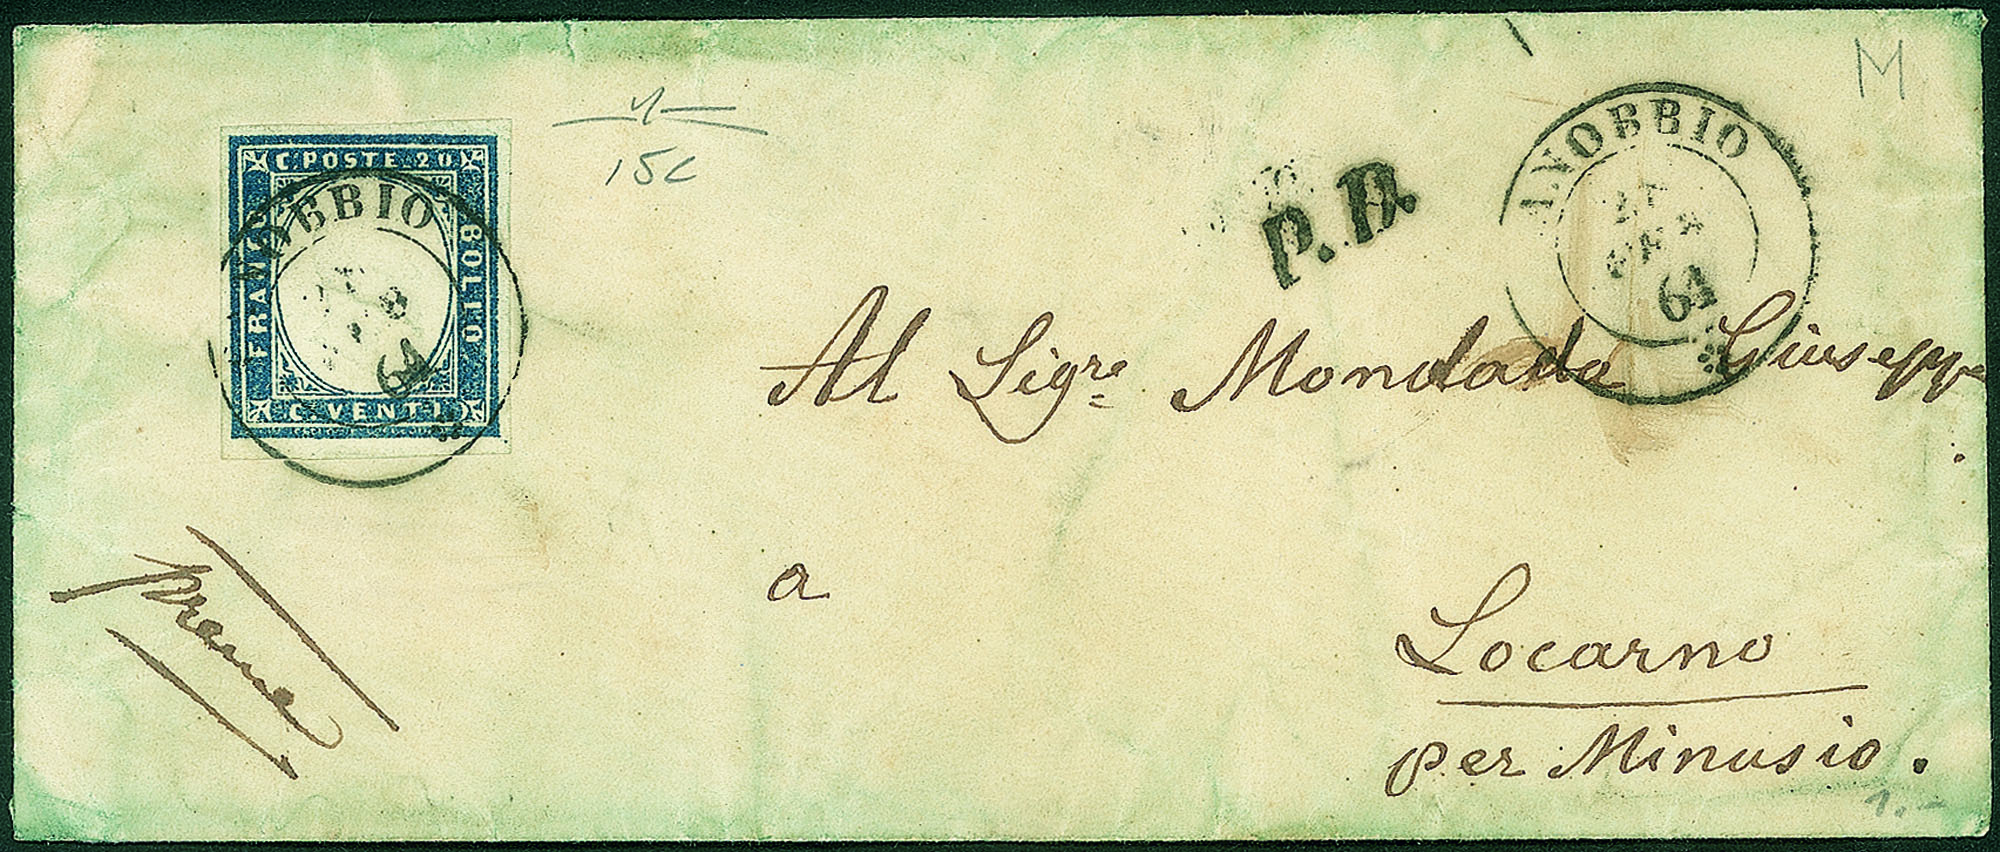 C. POSTE 20
FRANCO
BOLLO
C. VENTI
NOBBIO
61
15c
P.D.
ANOBBIO
61
M
Al Sigre Mondada Giuseppe
a
Locarno
per Minusio.
franca
1.-